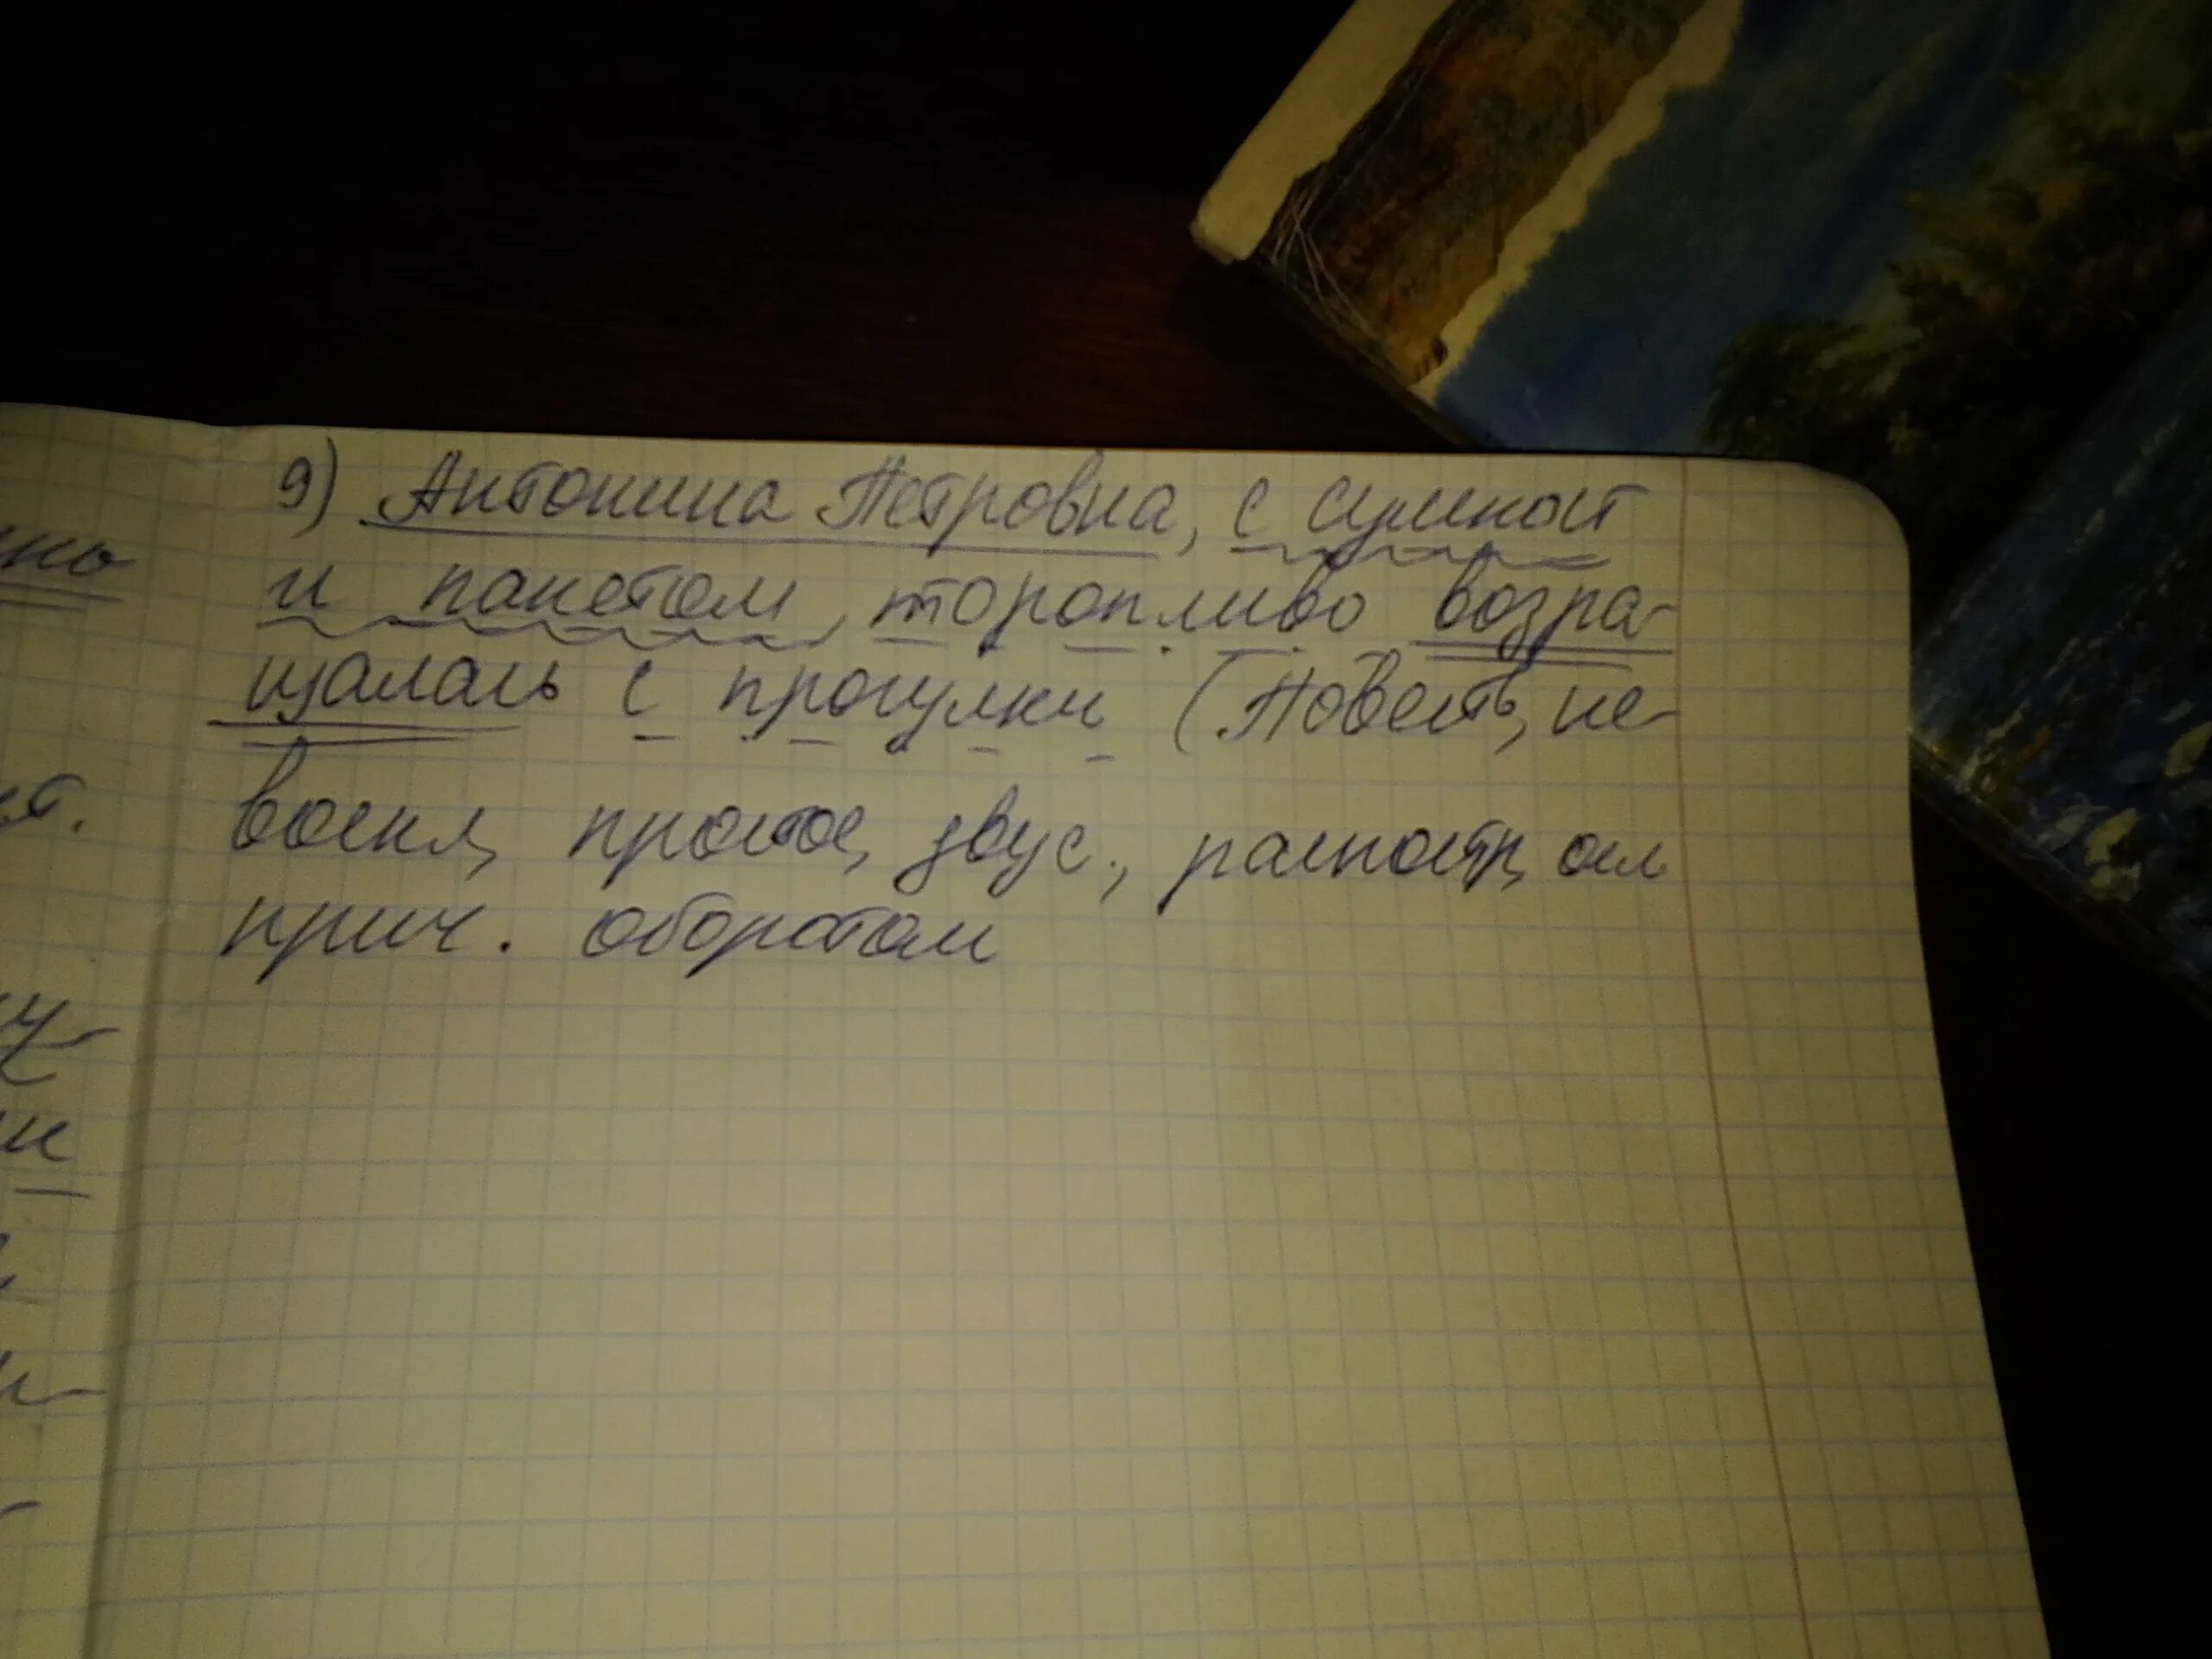 9) Антонина Петровна, с сумкой
и пакетом, торопливо возра-
щалась с прогулки (Повеств, не-
воскл, простое, двус., распостр, осл
прич. оборотом
но
ст.